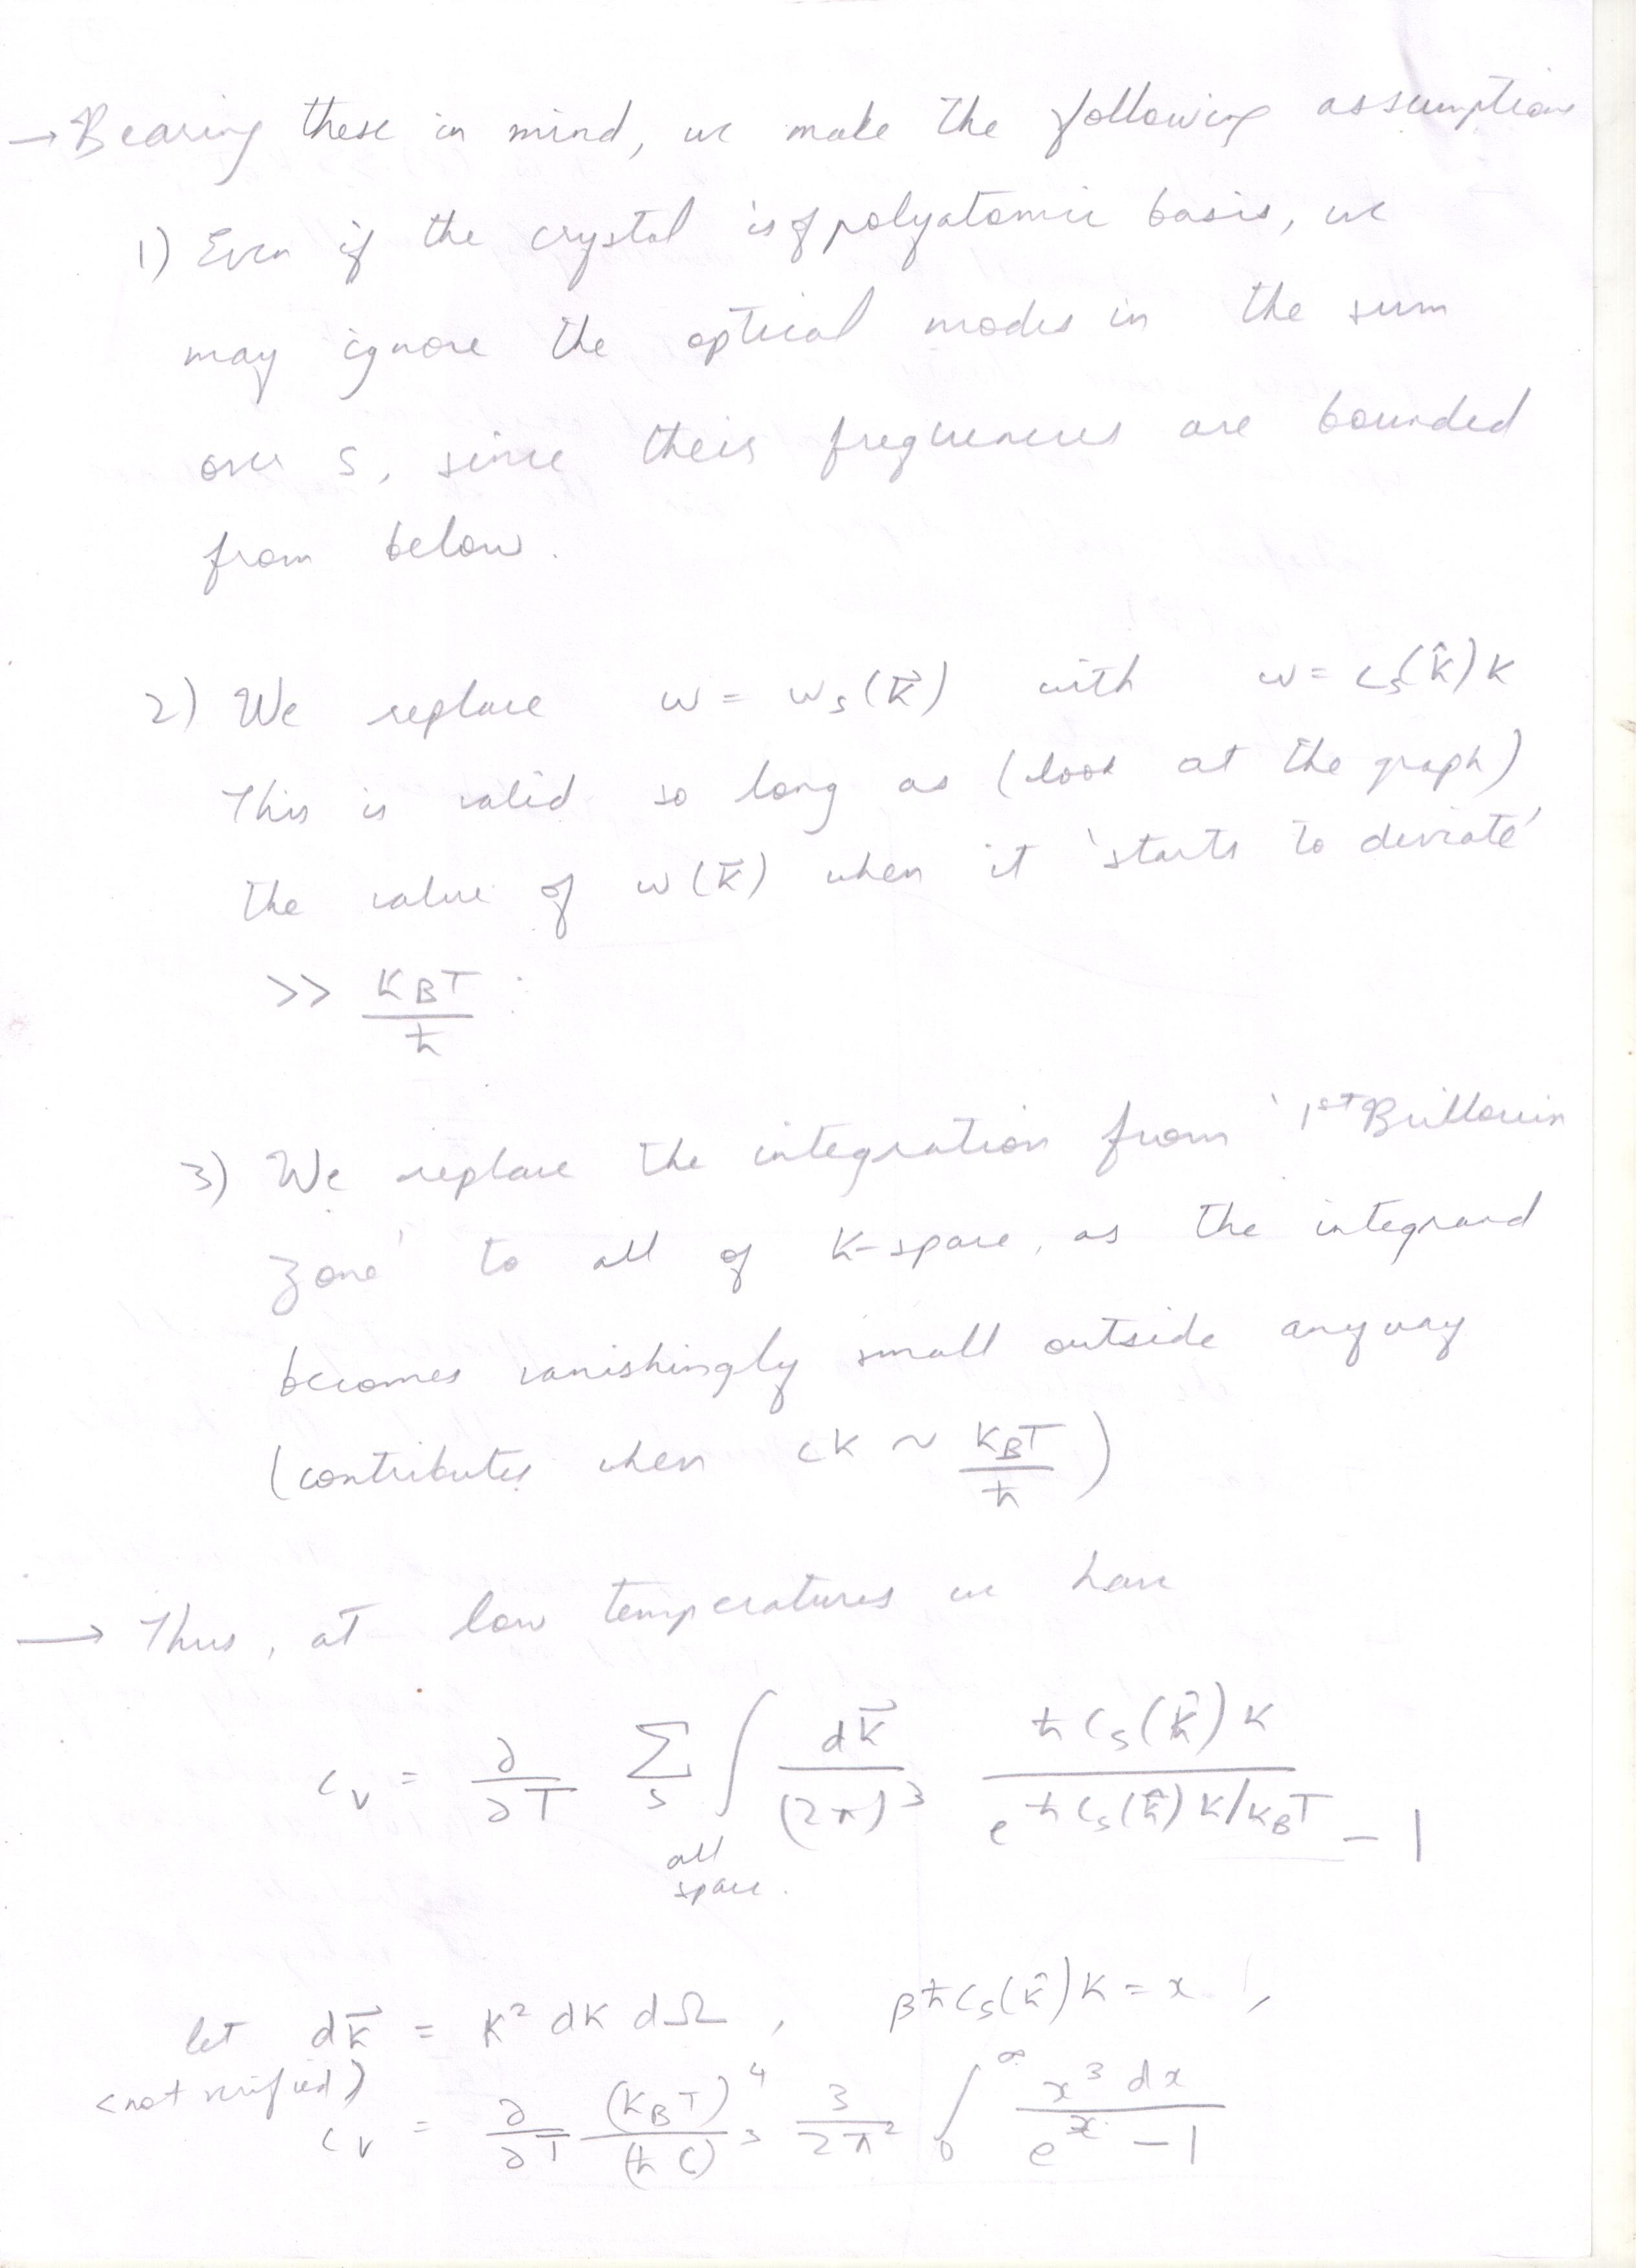 → Bearing these in mind, we make the following assumptions
1) Even if the crystal is of polyatomic basis, we
may ignore the optical modes in the sum
over s, since their frequencies are bounded
from below.
2) We replace ω = ω_s(k⃗) with ω = c_s(k̂)k
This is valid so long as (look at the graph)
the value of ω(k⃗) when it 'starts to deviate'
>> K_BT/ħ
3) We replace the integration from '1st Brillouin
zone' to all of K-space, as the integrand
becomes vanishingly small outside anyway
(contributes when ck ~ K_BT/ħ)
→ Thus, at low temperatures we have
c_v = ∂/∂T Σ_s ∫ dk⃗/(2π)^3 ħc_s(k̂)k / (e^{ħc_s(k̂)k/k_BT} - 1)
all
space.
let dk⃗ = k² dk dΩ, βħc_s(k̂)k = x,
(not verified)
c_v = ∂/∂T (k_BT)^4/(ħc)^3 3/2π² ∫_0^∞ x³dx/(e^x - 1)